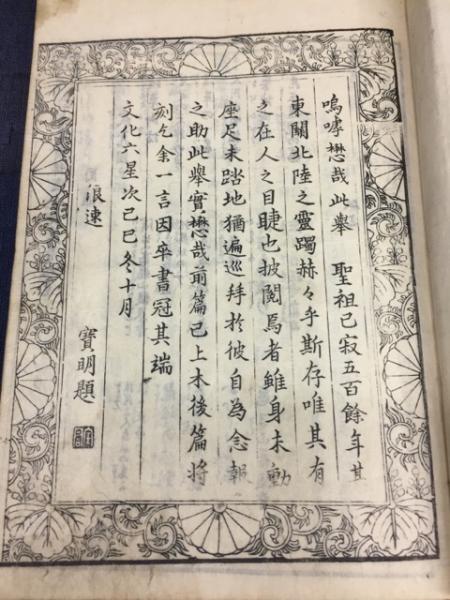 嗚嘑懋哉此舉　聖祖已寂五百餘年其
東關北陸之靈躅赫々乎斯存唯其有
之在人之目睫也披閱焉者雖身未動
座足未踏地猶遍巡拜於彼自為念報
之助此舉實懋哉前篇已上木後篇將
刻乞余一言因卒書冠其端
文化六星次己巳冬十月
浪速
寶明題